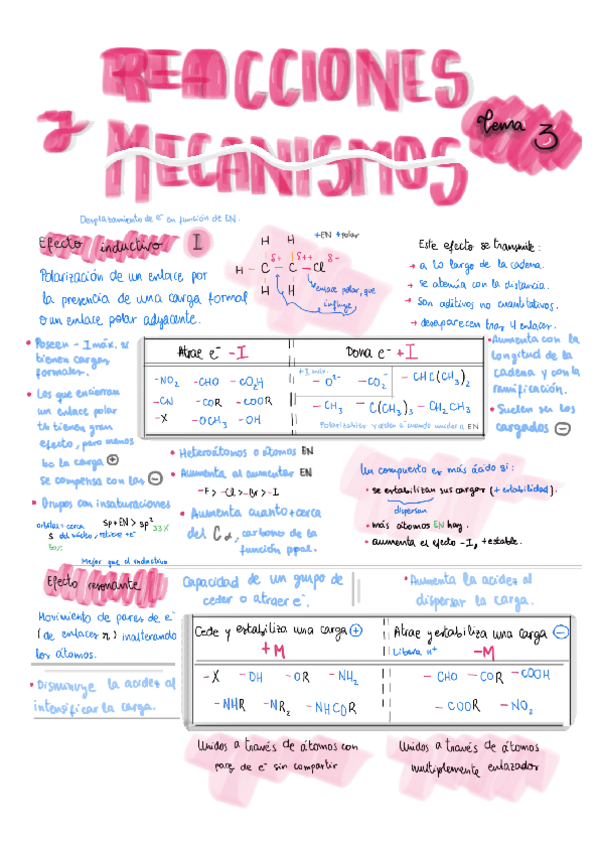 REACCIONES
y MECANISMOS
Tema 3
Desplazamiento de e⁻ en función de EN.
Efecto inductivo I
Polarización de un enlace por
la presencia de una carga formal
o un enlace polar adyacente.
H H
H – C – C – Cl
H H
δ+ δ++ δ-
+EN +polar
enlace polar, que
influye
Este efecto se transmite:
→ a lo largo de la cadena.
→ se atenúa con la distancia.
→ son aditivos no cuantitativos.
→ desaparecen tras 4 enlaces.
• Poseen -I máx. si
tienen cargas
formales.
• Los que encierran
un enlace polar
tb tienen gran
efecto, pero menos
la carga ⊕
se compensa con las ⊖
• Grupos con insaturaciones
sp+EN > sp² 33%
50%
Atrae e⁻ -I
-NO₂ -CHO -CO₂H
-CN -COR -COOR
-X -OCH₃ -OH
Dona e⁻ +I
+I máx.
-O²⁻ -CO₂⁻ -CHC(CH₃)₂
-CH₃ -C(CH₃)₃ -CH₂CH₃
Polarizables y ceden e⁻ cuando unidos a EN
• Aumenta con la
longitud de la
cadena y con la
ramificación.
• Suelen ser los
cargados ⊖
• Heteroátomos o átomos EN
• Aumenta al aumentar EN
-F > -Cl > -Br > -I
• Aumenta cuanto + cerca
del Cα, carbono de la
función ppal.
Un compuesto es más ácido si:
• se estabilizan sus cargas (+ estabilidad).
dispersan
• más átomos EN hay.
• aumenta el efecto -I, + estable.
Mejor que el inductivo
Efecto resonante
Movimiento de pares de e⁻
(de enlaces π) inalterando
los átomos.
• Disminuye la acidez al
intensificar la carga.
Capacidad de un grupo de
ceder o atraer e⁻.
• Aumenta la acidez al
dispersar la carga.
Cede y estabiliza una carga ⊕
+M
-X -OH -OR -NH₂
-NHR -NR₂ -NHCOR
Atrae y estabiliza una carga ⊖
Libera H⁺ -M
-CHO -COR -COOH
-COOR -NO₂
Unidos a través de átomos con
pares de e⁻ sin compartir
Unidos a través de átomos
multiplemente enlazados